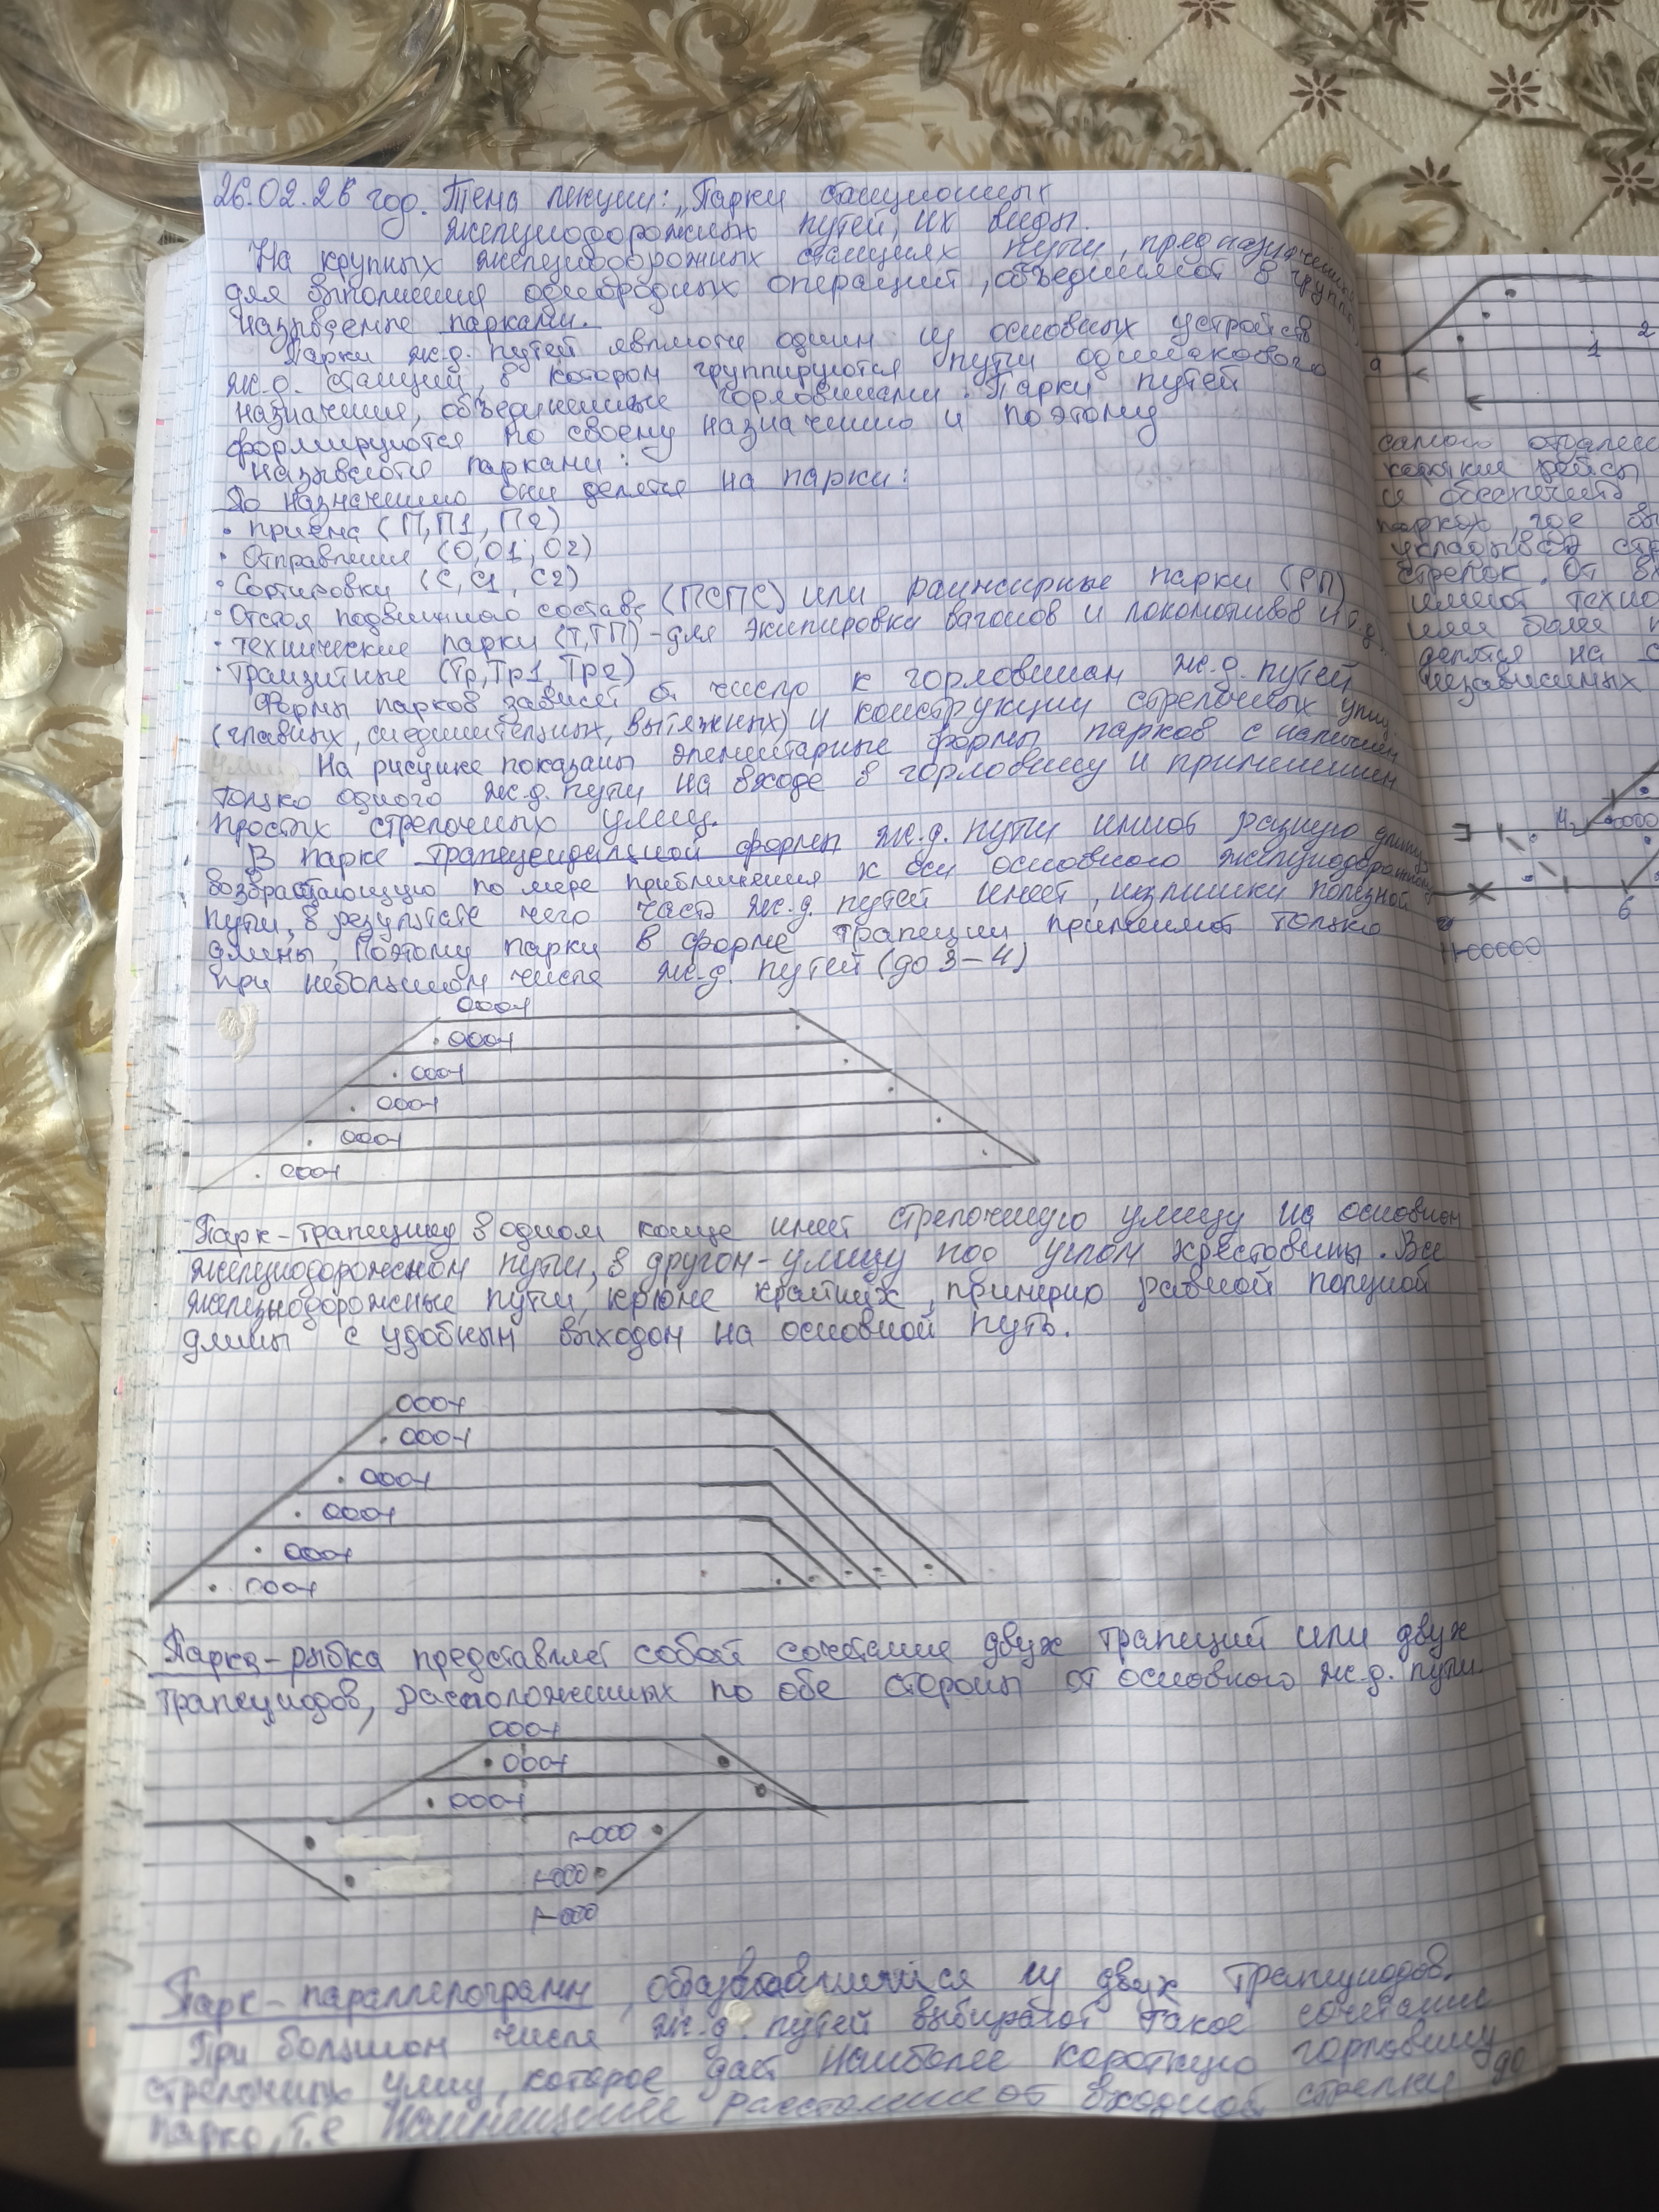 26.02.26 год. Тема лекции: „Парки станционных
железнодорожных путей, их виды.
На крупных железнодорожных станциях пути, предназначенные
для выполнения однородных операций, объединяют в группы,
называемые парками.
Парки ж.д. путей являются одним из основных устройств
ж.д. станций, в котором группируются пути одинакового
назначения, объединенные горловинами. Парки путей
формируются по своему назначению и поэтому
называются парками:
По назначению они делятся на парки:
• приёма (П, П1, П2)
• Отправления (О, О1, О2)
• Сортировки (С, С1, С2)
• Отстоя подвижного состава (ПСПС) или ранжирные парки (РП)
• технические парки (Т, ТП) - для экипировки вагонов и локомотивов и т.д.
• транзитные (Тр, Тр1, Тр2)
Формы парков зависят от число к горловинам ж.д. путей
(главных, соединительных, вытяжных) и конструкции стрелочных улиц
На рисунке показаны элементарные формы парков с наличием
только одного ж.д. пути на входе в горловину и применением
простых стрелочных улиц.
В парке трапецеидальной формы ж.д. пути имеют разную длину,
возврастающую по мере приближения к оси основного железнодорожного
пути, в результате чего часть ж.д. путей имеет, излишки полезной
длины, Поэтому парки в форме трапеции применяют только
при небольшом числе ж.д. путей (до 3-4)
Парк-трапецоид в одном конце имеет стрелочную улицу на основном
железнодорожном пути, в другом - улицу под углом крестовины. Все
железнодорожные пути, кроме крайних, примерно равной полезной
длины с удобным выходом на основной путь.
Парка-рыбка представляет собой сочетание двух трапеций или двух
трапецоидов, расположенных по обе стороны от основного ж.д. пути
Парк-параллелограмм, образовавшийся из двух трапецоидов.
При большом числе ж.д. путей выбирают такое сочетание
стрелочных улиц, которое даёт наиболее короткую горловину
парка, т.е наименьшее расстояние от входной стрелки до
1
2
самого отдален
короткие рейсы
ся обеспечить
парках, где
укладывать стр
стрелок. От
имеют техно
или более
делятся на
независимых
6